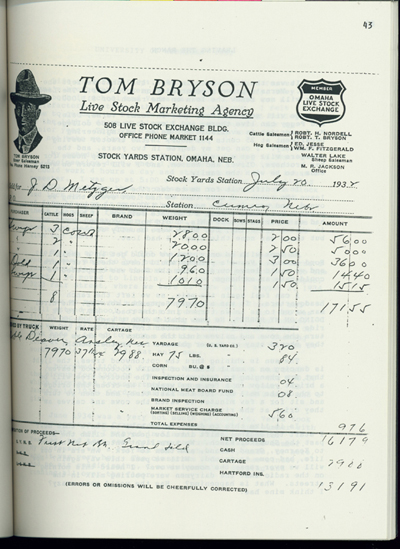 43
TOM BRYSON
Live Stock Marketing Agency
508 LIVE STOCK EXCHANGE BLDG.
OFFICE PHONE MARKET 1144
STOCK YARDS STATION, OMAHA, NEB.
MEMBER
OMAHA
LIVE STOCK
EXCHANGE
TOM BRYSON
Cattle Salesmen ROBT. H. NORDELL
ROBT. T. BRYSON
Hog Salesmen ED. JESSE
WM. F. FITZGERALD
WALTER LAKE
Sheep Salesman
M. R. JACKSON
Office
Stock Yards Station July 20 1932
J. D. Metzger
Station Neb
CATTLE HOGS SHEEP BRAND WEIGHT DOCK SOWS STAGS PRICE AMOUNT
3 Cows 2800 2 00 56 00
2 " 2000 2 50 50 00
1 " 1200 3 00 36 00
1 " 960 1 50 14 40
1 " 1010 1 50 15 15
8 7970 171 55
BY TRUCK WEIGHT RATE CARTAGE
7970 37½ 29 88
YARDAGE (U. S. YARD CO.) 3 20
HAY 75 LBS. " 84
CORN BU. @ $ "
INSPECTION AND INSURANCE 04
NATIONAL MEAT BOARD FUND 08
BRAND INSPECTION
MARKET SERVICE CHARGE 5 60
(SORTING) (SELLING) (WEIGHING) (ACCOUNTING)
TOTAL EXPENSES 9 76
OF PROCEEDS—
NET PROCEEDS 161 79
CASH
CARTAGE 29 88
HARTFORD INS.
(ERRORS OR OMISSIONS WILL BE CHEERFULLY CORRECTED) 131 91